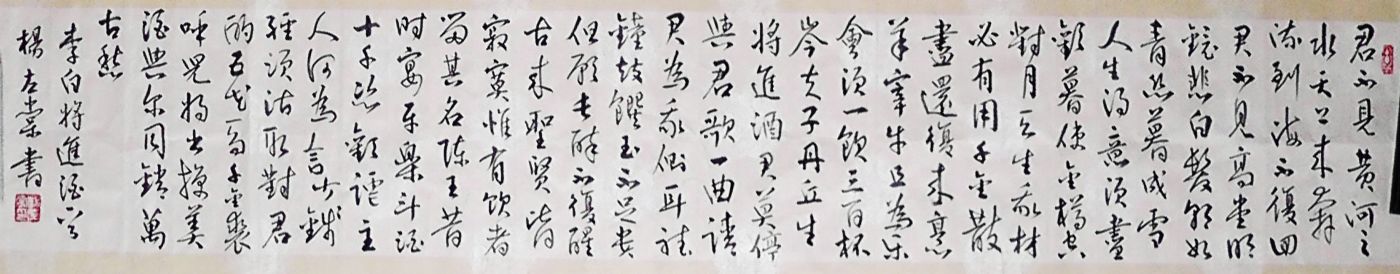 君不见黄河之
水天上来奔
流到海不復回
君不見高堂明
鏡悲白髮朝如
青丝暮成雪
人生得意須盡
歡莫使金樽空
對月天生我材
必有用千金散
盡還復來烹
羊宰牛且為乐
會須一飲三百杯
岑夫子丹丘生
將進酒君莫停
與君歌一曲請
君為我倾耳聽
鐘鼓饌玉不足贵
但願長醉不復醒
古来聖賢皆
寂寞惟有飲者
留其名陈王昔
时宴平樂斗酒
十千恣歡謔主
人何為言少錢
徑須沽取對君
酌五花馬千金裘
呼兒将出換美
酒與尔同銷萬
古愁
李白將進酒
楊左棠書